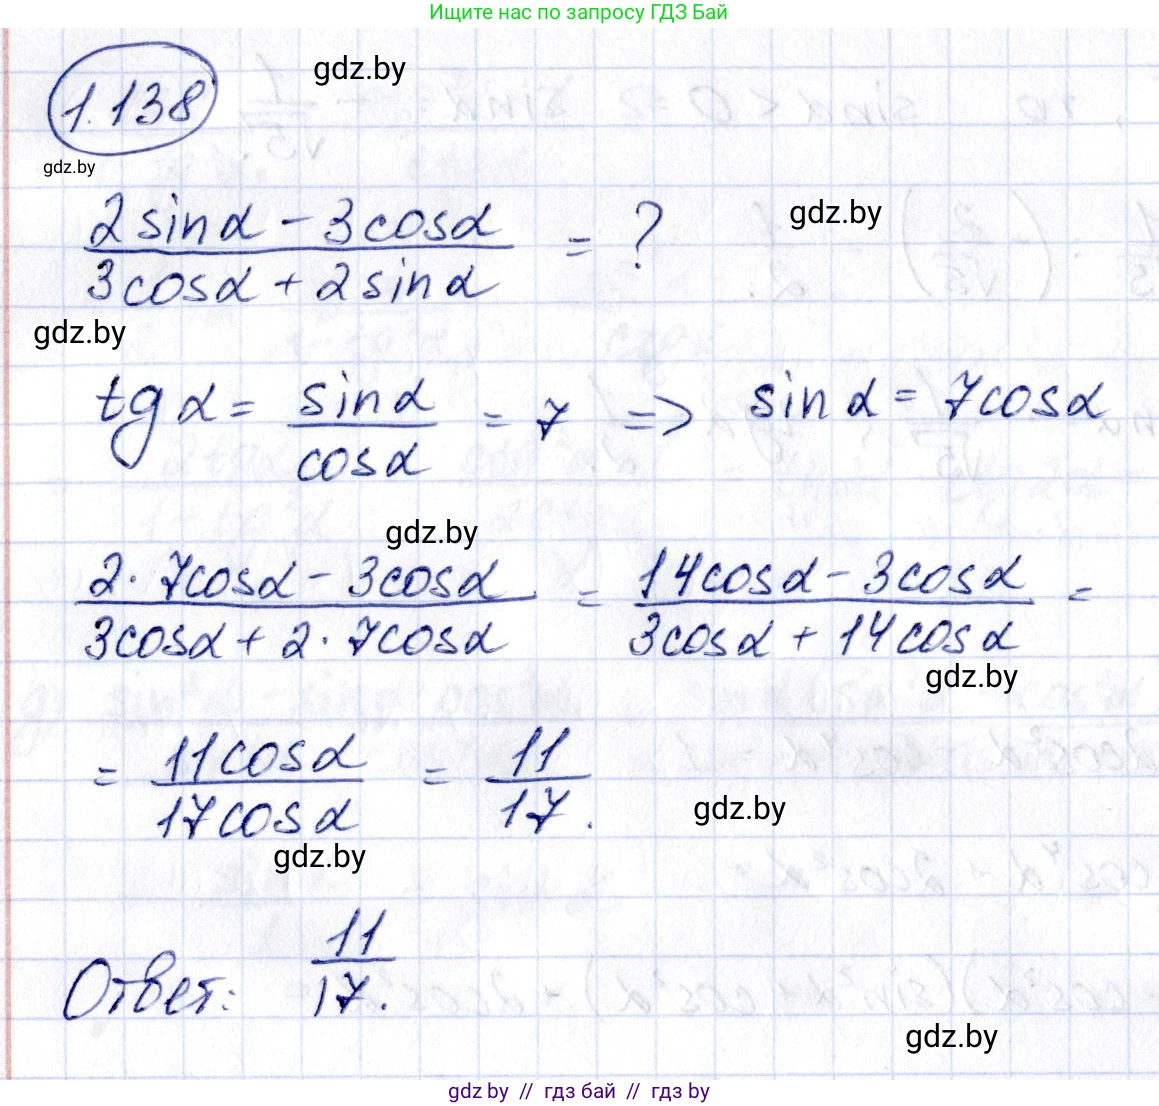 Ищите нас по запросу ГДЗ Бай
1.138
gdz.by
gdz.by
(2 sin α − 3 cos α) / (3 cos α + 2 sin α) = ?
gdz.by
gdz.by
tg α = sin α / cos α = 7 => sin α = 7 cos α
gdz.by
(2 · 7cos α − 3cos α) / (3cos α + 2 · 7cos α) = (14cos α − 3cos α) / (3cos α + 14cos α) =
gdz.by
= 11cos α / 17cos α = 11/17.
gdz.by
gdz.by
Ответ: 11/17.
gdz.by
gdz by // гдз бай // гдз by